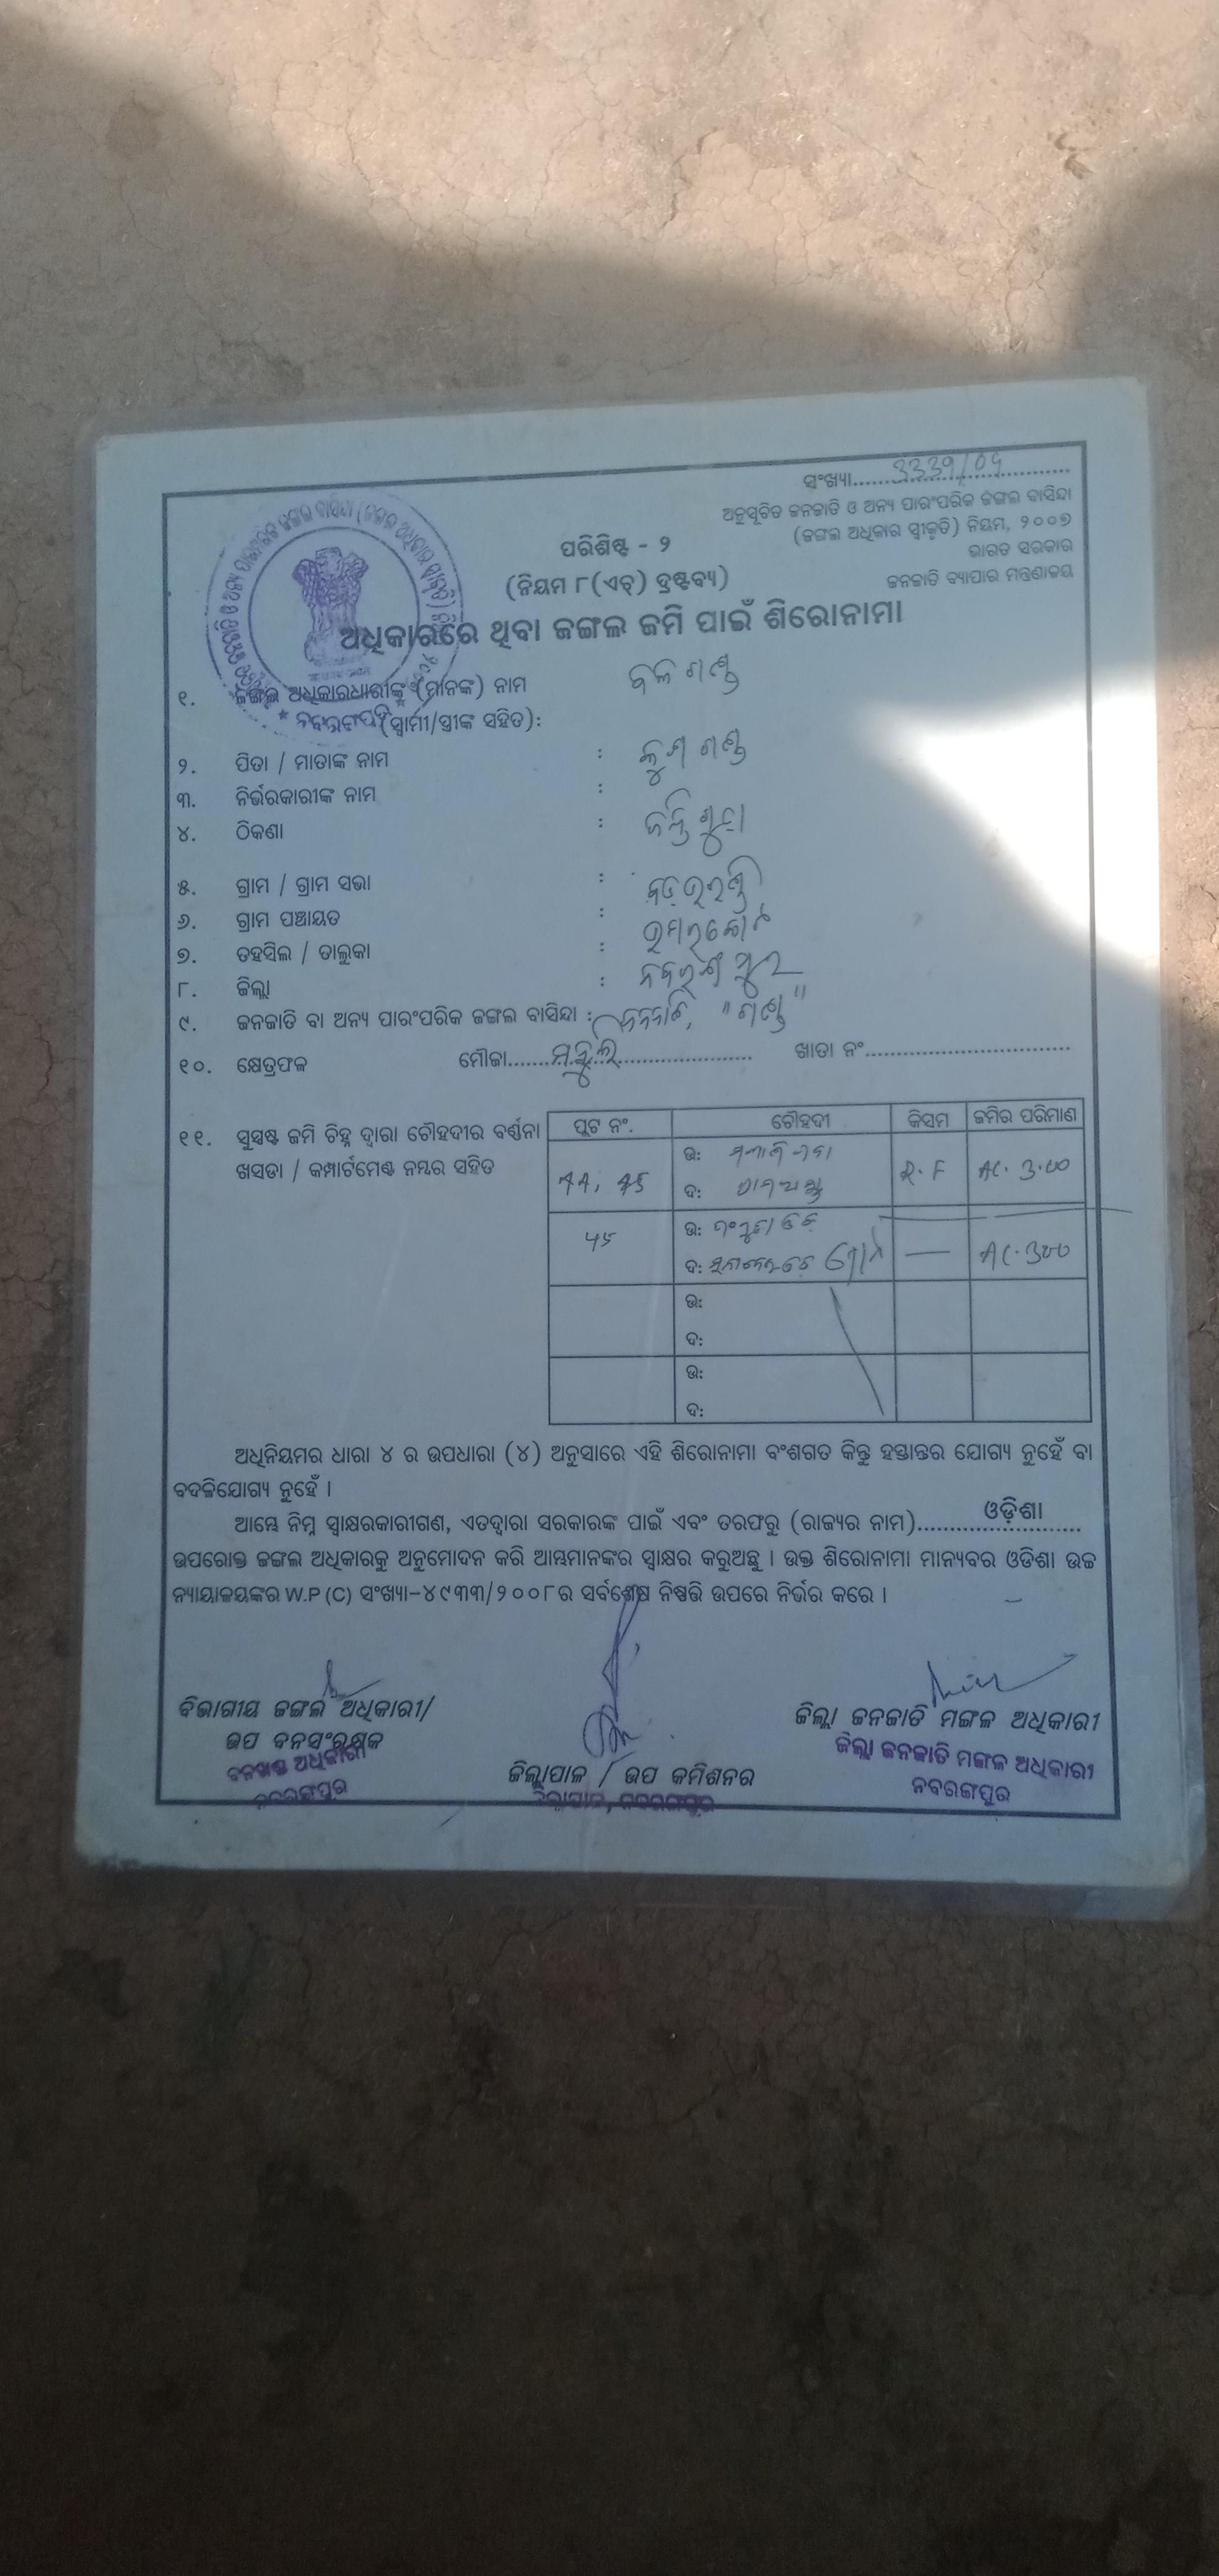 ସଂଖ୍ୟା..... 3339/09
ଅନୁସୂଚିତ ଜନଜାତି ଓ ଅନ୍ୟ ପାରଂପରିକ ଜଙ୍ଗଲ ବାସିନ୍ଦା
(ଜଙ୍ଗଲ ଅଧିକାର ସ୍ୱୀକୃତି) ନିୟମ, ୨୦୦୭
ଭାରତ ସରକାର
ଜନଜାତି ବ୍ୟାପାର ମନ୍ତ୍ରଣାଳୟ
ପରିଶିଷ୍ଟ - ୨
(ନିୟମ ୮(ଏଚ୍) ଦ୍ରଷ୍ଟବ୍ୟ)
ଅଧିକାରରେ ଥିବା ଜଙ୍ଗଲ ଜମି ପାଇଁ ଶିରୋନାମା
୧. ଜଙ୍ଗଲ ଅଧିକାରଧାରୀଙ୍କ (ମାନଙ୍କ) ନାମ ବଳ ଗଣ୍ଡ
(ସ୍ୱାମୀ/ସ୍ତ୍ରୀଙ୍କ ସହିତ):
୨. ପିତା / ମାତାଙ୍କ ନାମ : କୁଶ ଗଣ୍ଡ
୩. ନିର୍ଭରକାରୀଙ୍କ ନାମ :
୪. ଠିକଣା :
୫. ଗ୍ରାମ / ଗ୍ରାମ ସଭା :
୬. ଗ୍ରାମ ପଞ୍ଚାୟତ :
୭. ତହସିଲ / ତାଲୁକା : ଉମରକୋଟ
୮. ଜିଲ୍ଲା : ନବରଙ୍ଗପୁର
୯. ଜନଜାତି ବା ଅନ୍ୟ ପାରଂପରିକ ଜଙ୍ଗଲ ବାସିନ୍ଦା : ଜନଜାତି, "ଗଣ୍ଡ"
୧୦. କ୍ଷେତ୍ରଫଳ ମୌଜା..... ଖାତା ନଂ.....
୧୧. ସୁସ୍ପଷ୍ଟ ଜମି ଚିହ୍ନ ଦ୍ୱାରା ଚୌହଦୀର ବର୍ଣ୍ଣନା
ଖସଡା / କମ୍ପାର୍ଟମେଣ୍ଟ ନମ୍ବର ସହିତ
ପ୍ଲଟ ନଂ. ଚୌହଦୀ କିସମ ଜମିର ପରିମାଣ
ଉ:
44, 45 R.F AC. 3.00
ଦ:
ଉ:
45 — AC. 3.00
ଦ:
ଉ:
ଦ:
ଉ:
ଦ:
ଅଧିନିୟମର ଧାରା ୪ ର ଉପଧାରା (୪) ଅନୁସାରେ ଏହି ଶିରୋନାମା ବଂଶଗତ କିନ୍ତୁ ହସ୍ତାନ୍ତର ଯୋଗ୍ୟ ନୁହେଁ ବା
ବଦଳିଯୋଗ୍ୟ ନୁହେଁ ।
ଆମ୍ଭେ ନିମ୍ନ ସ୍ୱାକ୍ଷରକାରୀଗଣ, ଏତଦ୍ୱାରା ସରକାରଙ୍କ ପାଇଁ ଏବଂ ତରଫରୁ (ରାଜ୍ୟର ନାମ)..... ଓଡ଼ିଶା
ଉପରୋକ୍ତ ଜଙ୍ଗଲ ଅଧିକାରକୁ ଅନୁମୋଦନ କରି ଆମ୍ଭମାନଙ୍କର ସ୍ୱାକ୍ଷର କରୁଅଛୁ । ଉକ୍ତ ଶିରୋନାମା ମାନ୍ୟବର ଓଡିଶା ଉଚ୍ଚ
ନ୍ୟାୟାଳୟଙ୍କର W.P (C) ସଂଖ୍ୟା-୪୯୩୩/୨୦୦୮ର ସର୍ବଶେଷ ନିଷ୍ପତ୍ତି ଉପରେ ନିର୍ଭର କରେ ।
ବିଭାଗୀୟ ଜଙ୍ଗଲ ଅଧିକାରୀ/
ଉପ ବନସଂରକ୍ଷକ
ବନଖଣ୍ଡ ଅଧିକାରୀ
ନବରଙ୍ଗପୁର
ଜିଲ୍ଲାପାଳ / ଉପ କମିଶନର
ଜିଲ୍ଲାପାଳ, ନବରଙ୍ଗପୁର
ଜିଲ୍ଲା ଜନଜାତି ମଙ୍ଗଳ ଅଧିକାରୀ
ଜିଲ୍ଲା ଜନଜାତି ମଙ୍ଗଳ ଅଧିକାରୀ
ନବରଙ୍ଗପୁର